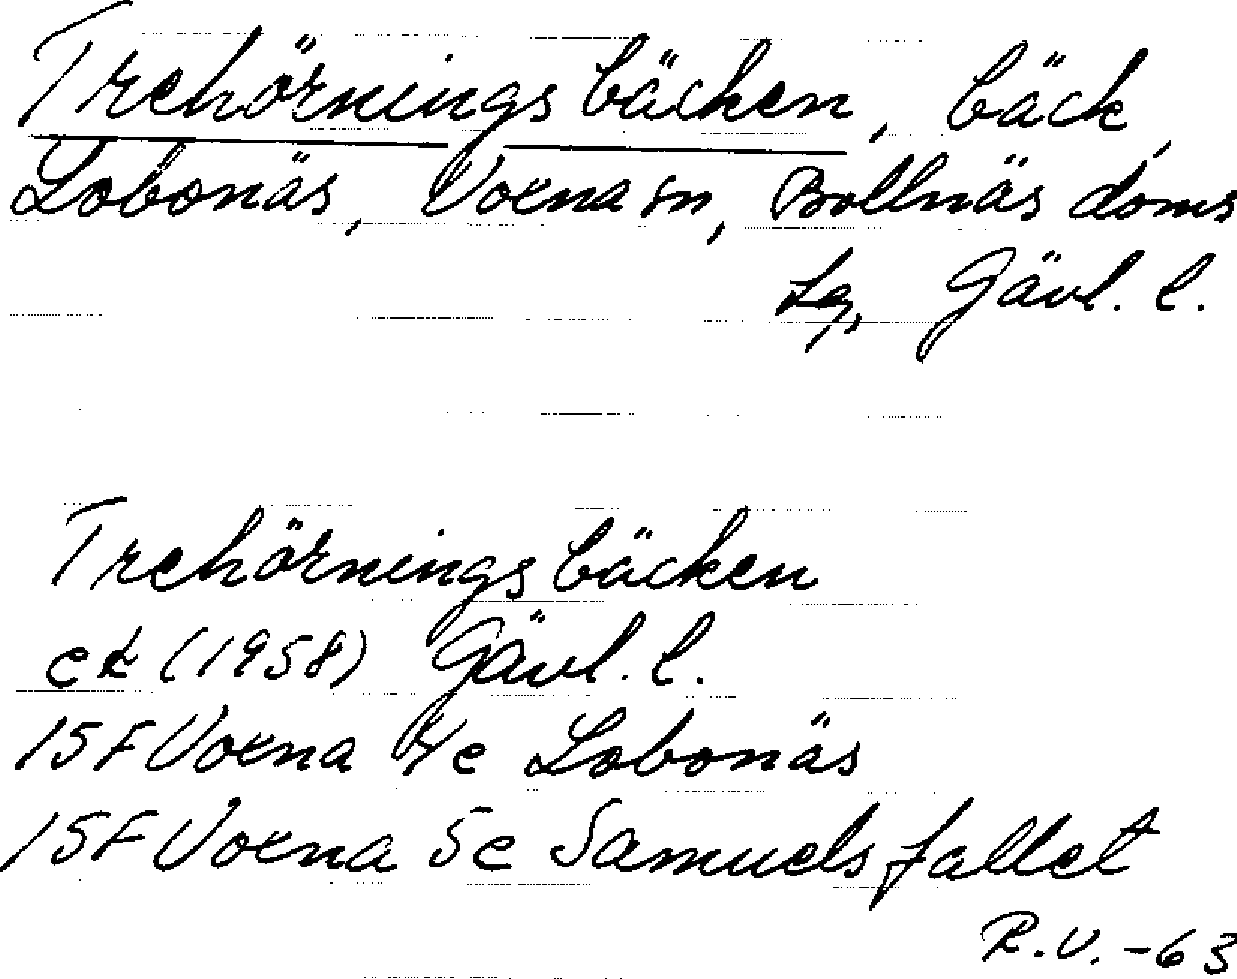 Trehörningsbäcken, bäck,
Lobonäs, Voxna sn, Bollnäs doms
lg, Gävl. l.
Trehörningsbäcken
ek (1958) Gävl. l.
15F Voxna 4e Lobonäs
15F Voxna 5e Samuelsfallet
R.V. -63